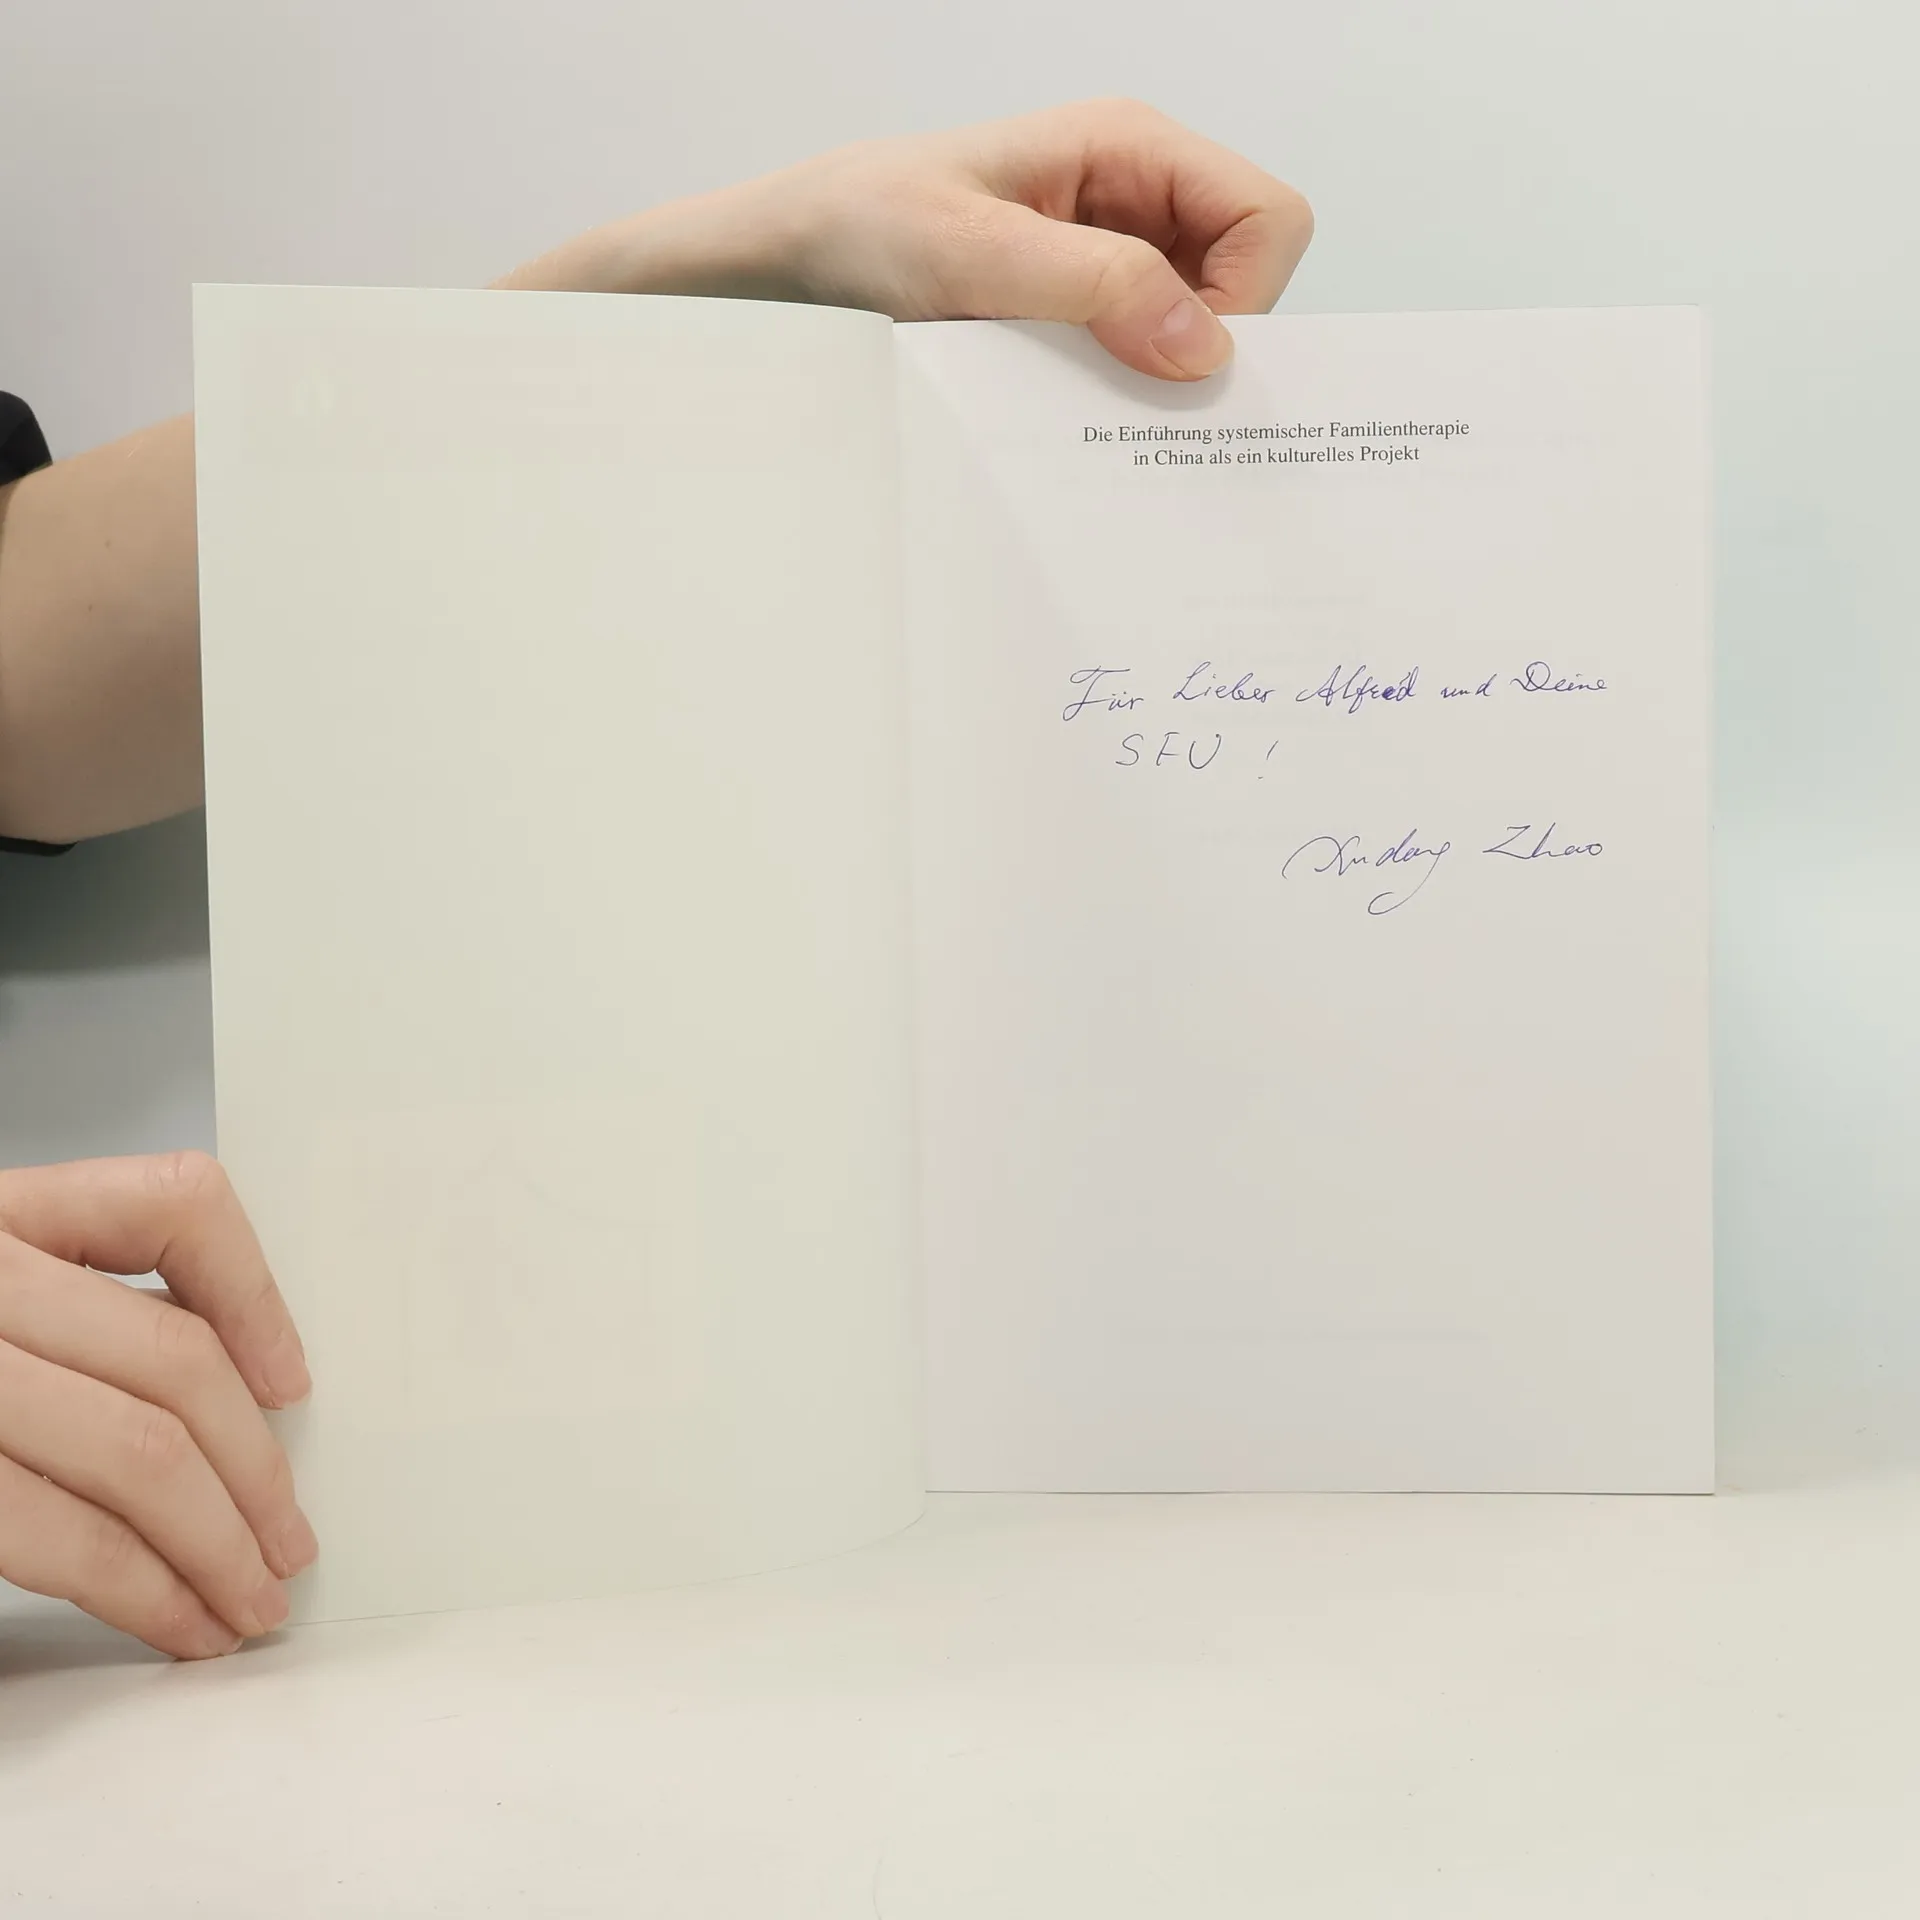 Die Einführung systemischer Familientherapie
in China als ein kulturelles Projekt
Für Lieber Alfred und Deine
SFU !
Xudong Zhao